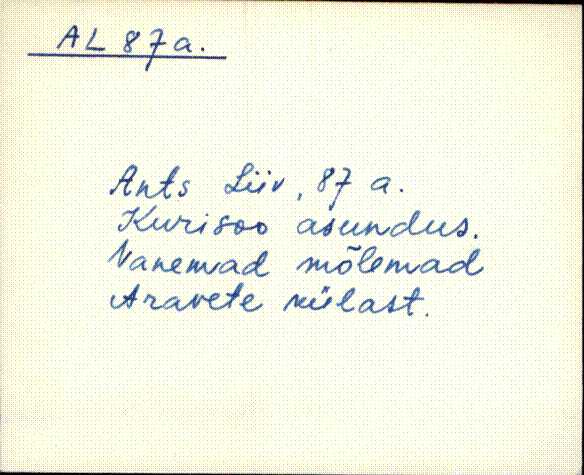 AL 87a.
Ants Liiv, 87 a.
Kurisoo asundus.
Vanemad mõlemad
Aravete külast.